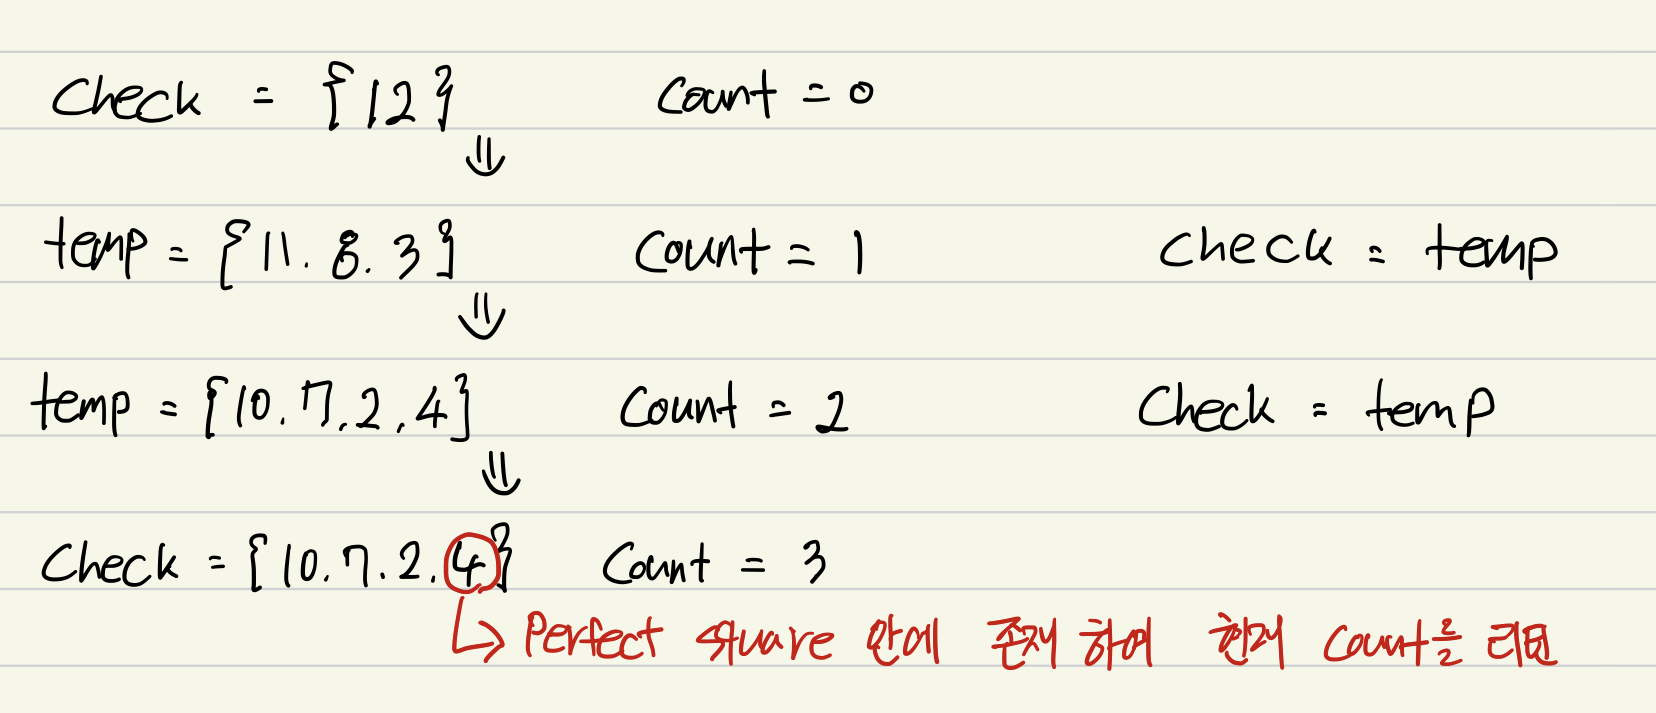 Check = {12} Count = 0
⇓
temp = {11. 8. 3} Count = 1 Check = temp
⇓
temp = {10. 7. 2, 4} Count = 2 Check = temp
⇓
Check = {10. 7. 2. 4} Count = 3
↳ Perfect square 안에 존재 하여 현재 Count를 리턴